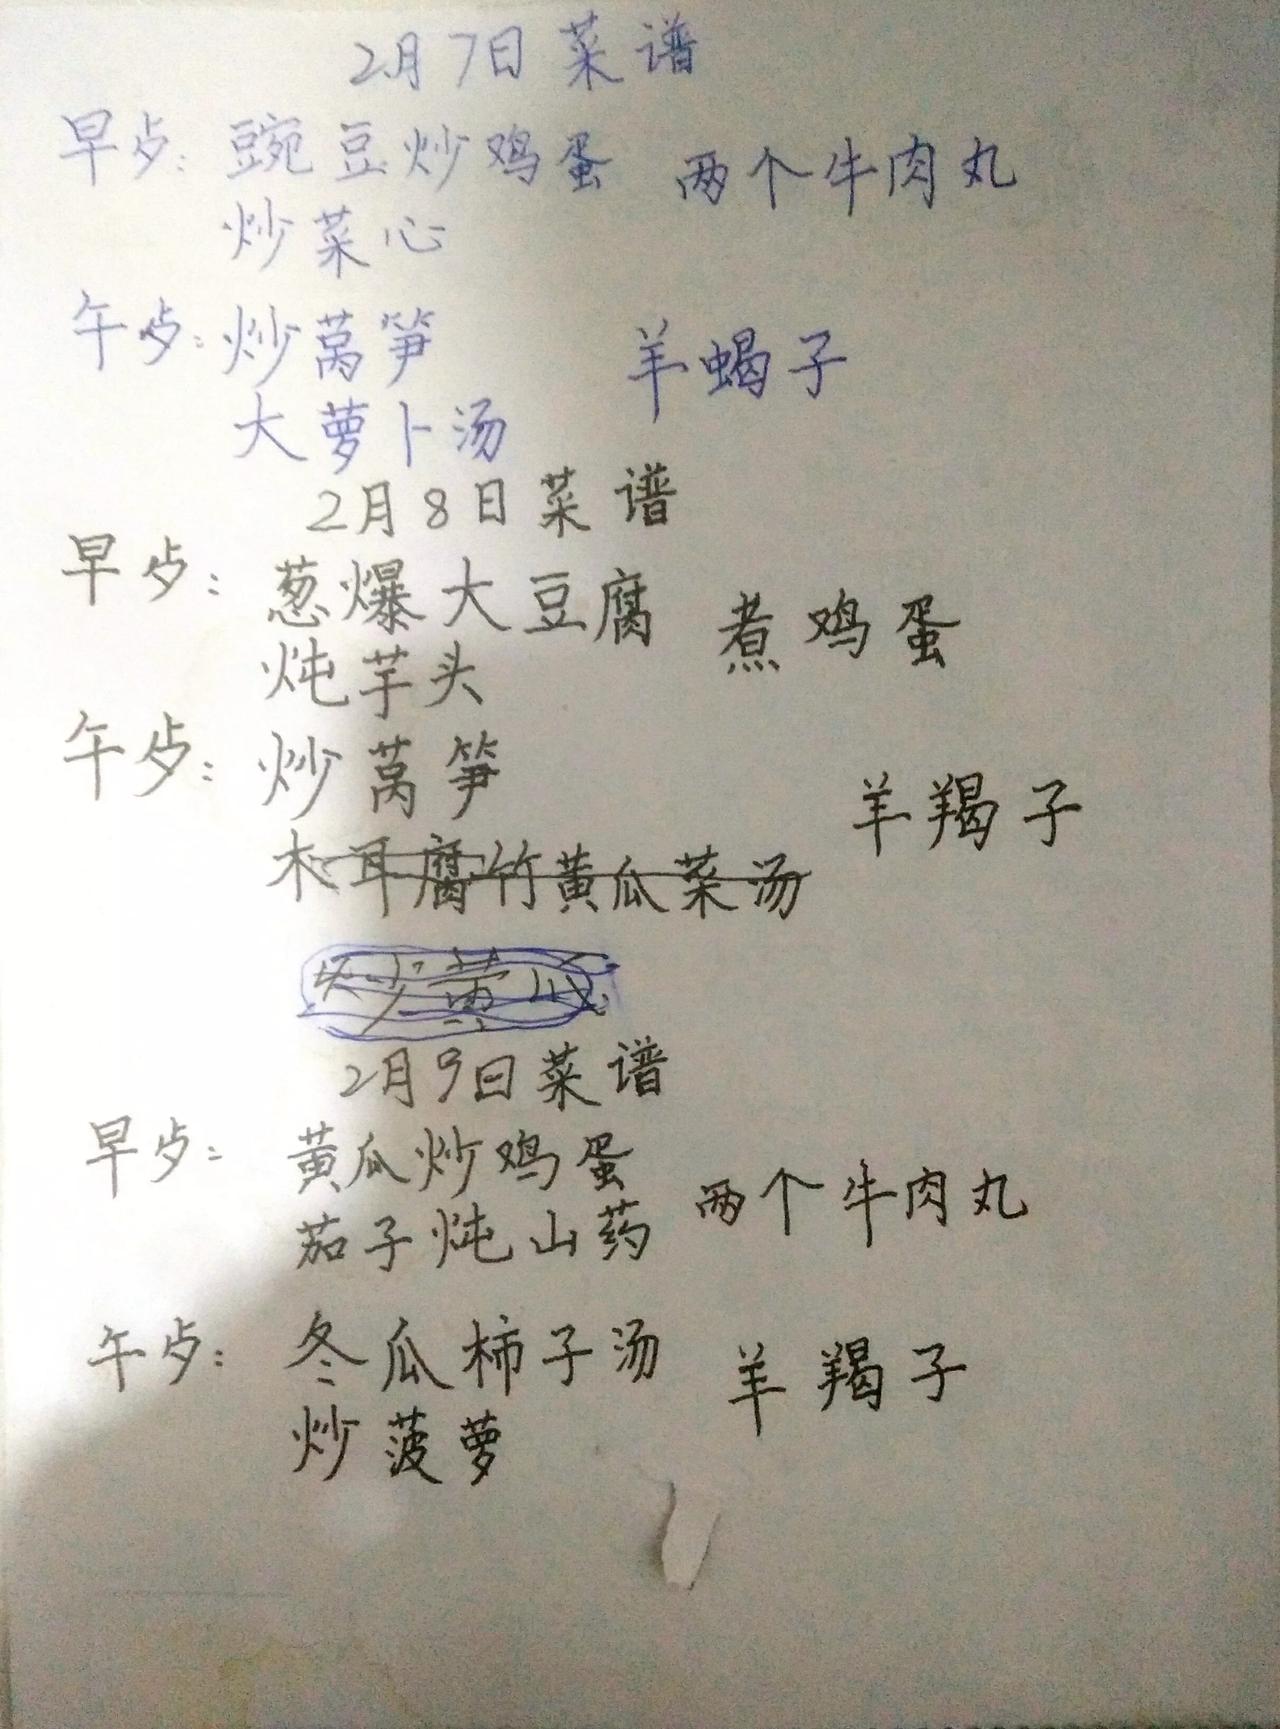 2月7日菜谱
早歺：豌豆炒鸡蛋 两个牛肉丸
炒菜心
午歺：炒莴笋 羊蝎子
大萝卜汤
2月8日菜谱
早歺：葱爆大豆腐 煮鸡蛋
炖芋头
午歺：炒莴笋 羊羯子
木耳腐竹黄瓜菜汤
炒黄瓜
2月9日菜谱
早歺：黄瓜炒鸡蛋 两个牛肉丸
茄子炖山药
午歺：冬瓜柿子汤 羊羯子
炒菠萝